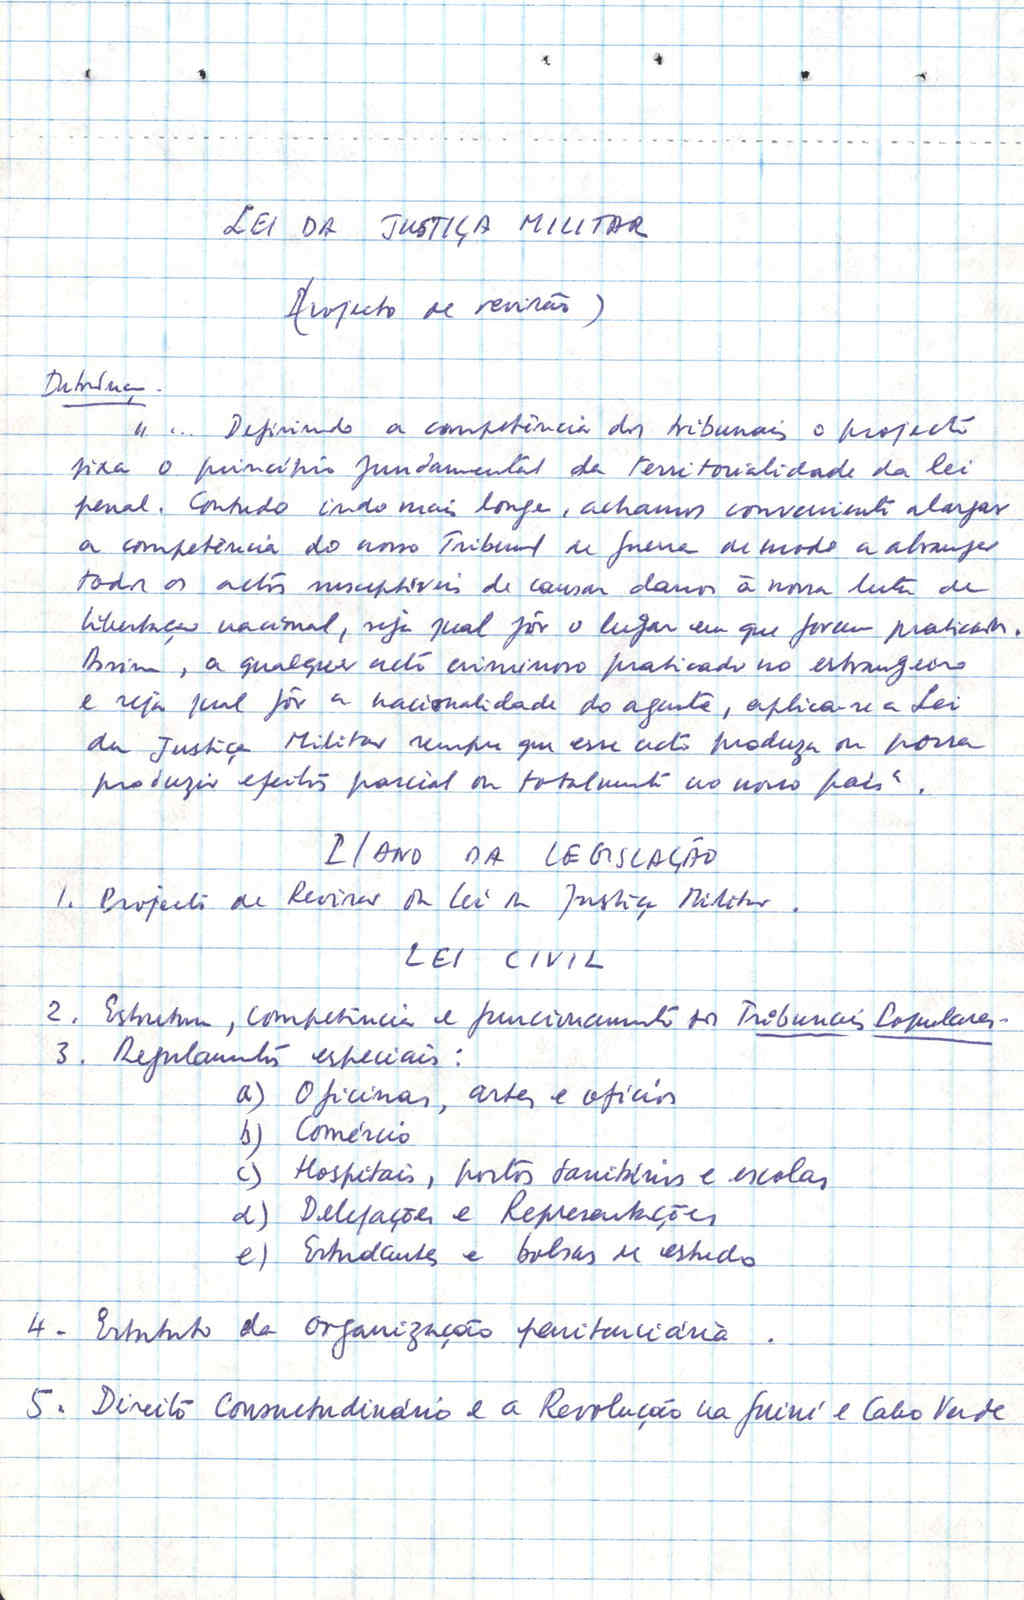 LEI DA JUSTIÇA MILITAR
(Projecto de revisão)
"... Definindo a competência dos tribunais o projecto
fixa o princípio fundamental da territorialidade da lei
penal. Contudo indo mais longe, achamos conveniente alargar
a competência do nosso Tribunal de guerra de modo a abranger
todos os actos susceptíveis de causar danos à nossa luta de
libertação nacional, seja qual fôr o lugar em que forem praticados.
Assim, a qualquer acto criminoso praticado no estrangeiro
e seja qual fôr a nacionalidade do agente, aplica-se a Lei
da Justiça Militar sempre que esse acto produza ou possa
produzir efeitos parcial ou totalmente no nosso país".
I/ANO DA LEGISLAÇÃO
1. Projecto de Revisão da Lei da Justiça Militar.
LEI CIVIL
2. Estrutura, competência e funcionamento dos Tribunais Populares.
3. Regulamentos especiais:
a) Oficinas, artes e ofícios
b) Comércio
c) Hospitais, postos sanitários e escolas
d) Delegações e Representações
e) Estudantes e bolsas de estudo
4. Estatuto da organização penitenciária.
5. Direito Consuetudinário e a Revolução na Guiné e Cabo Verde